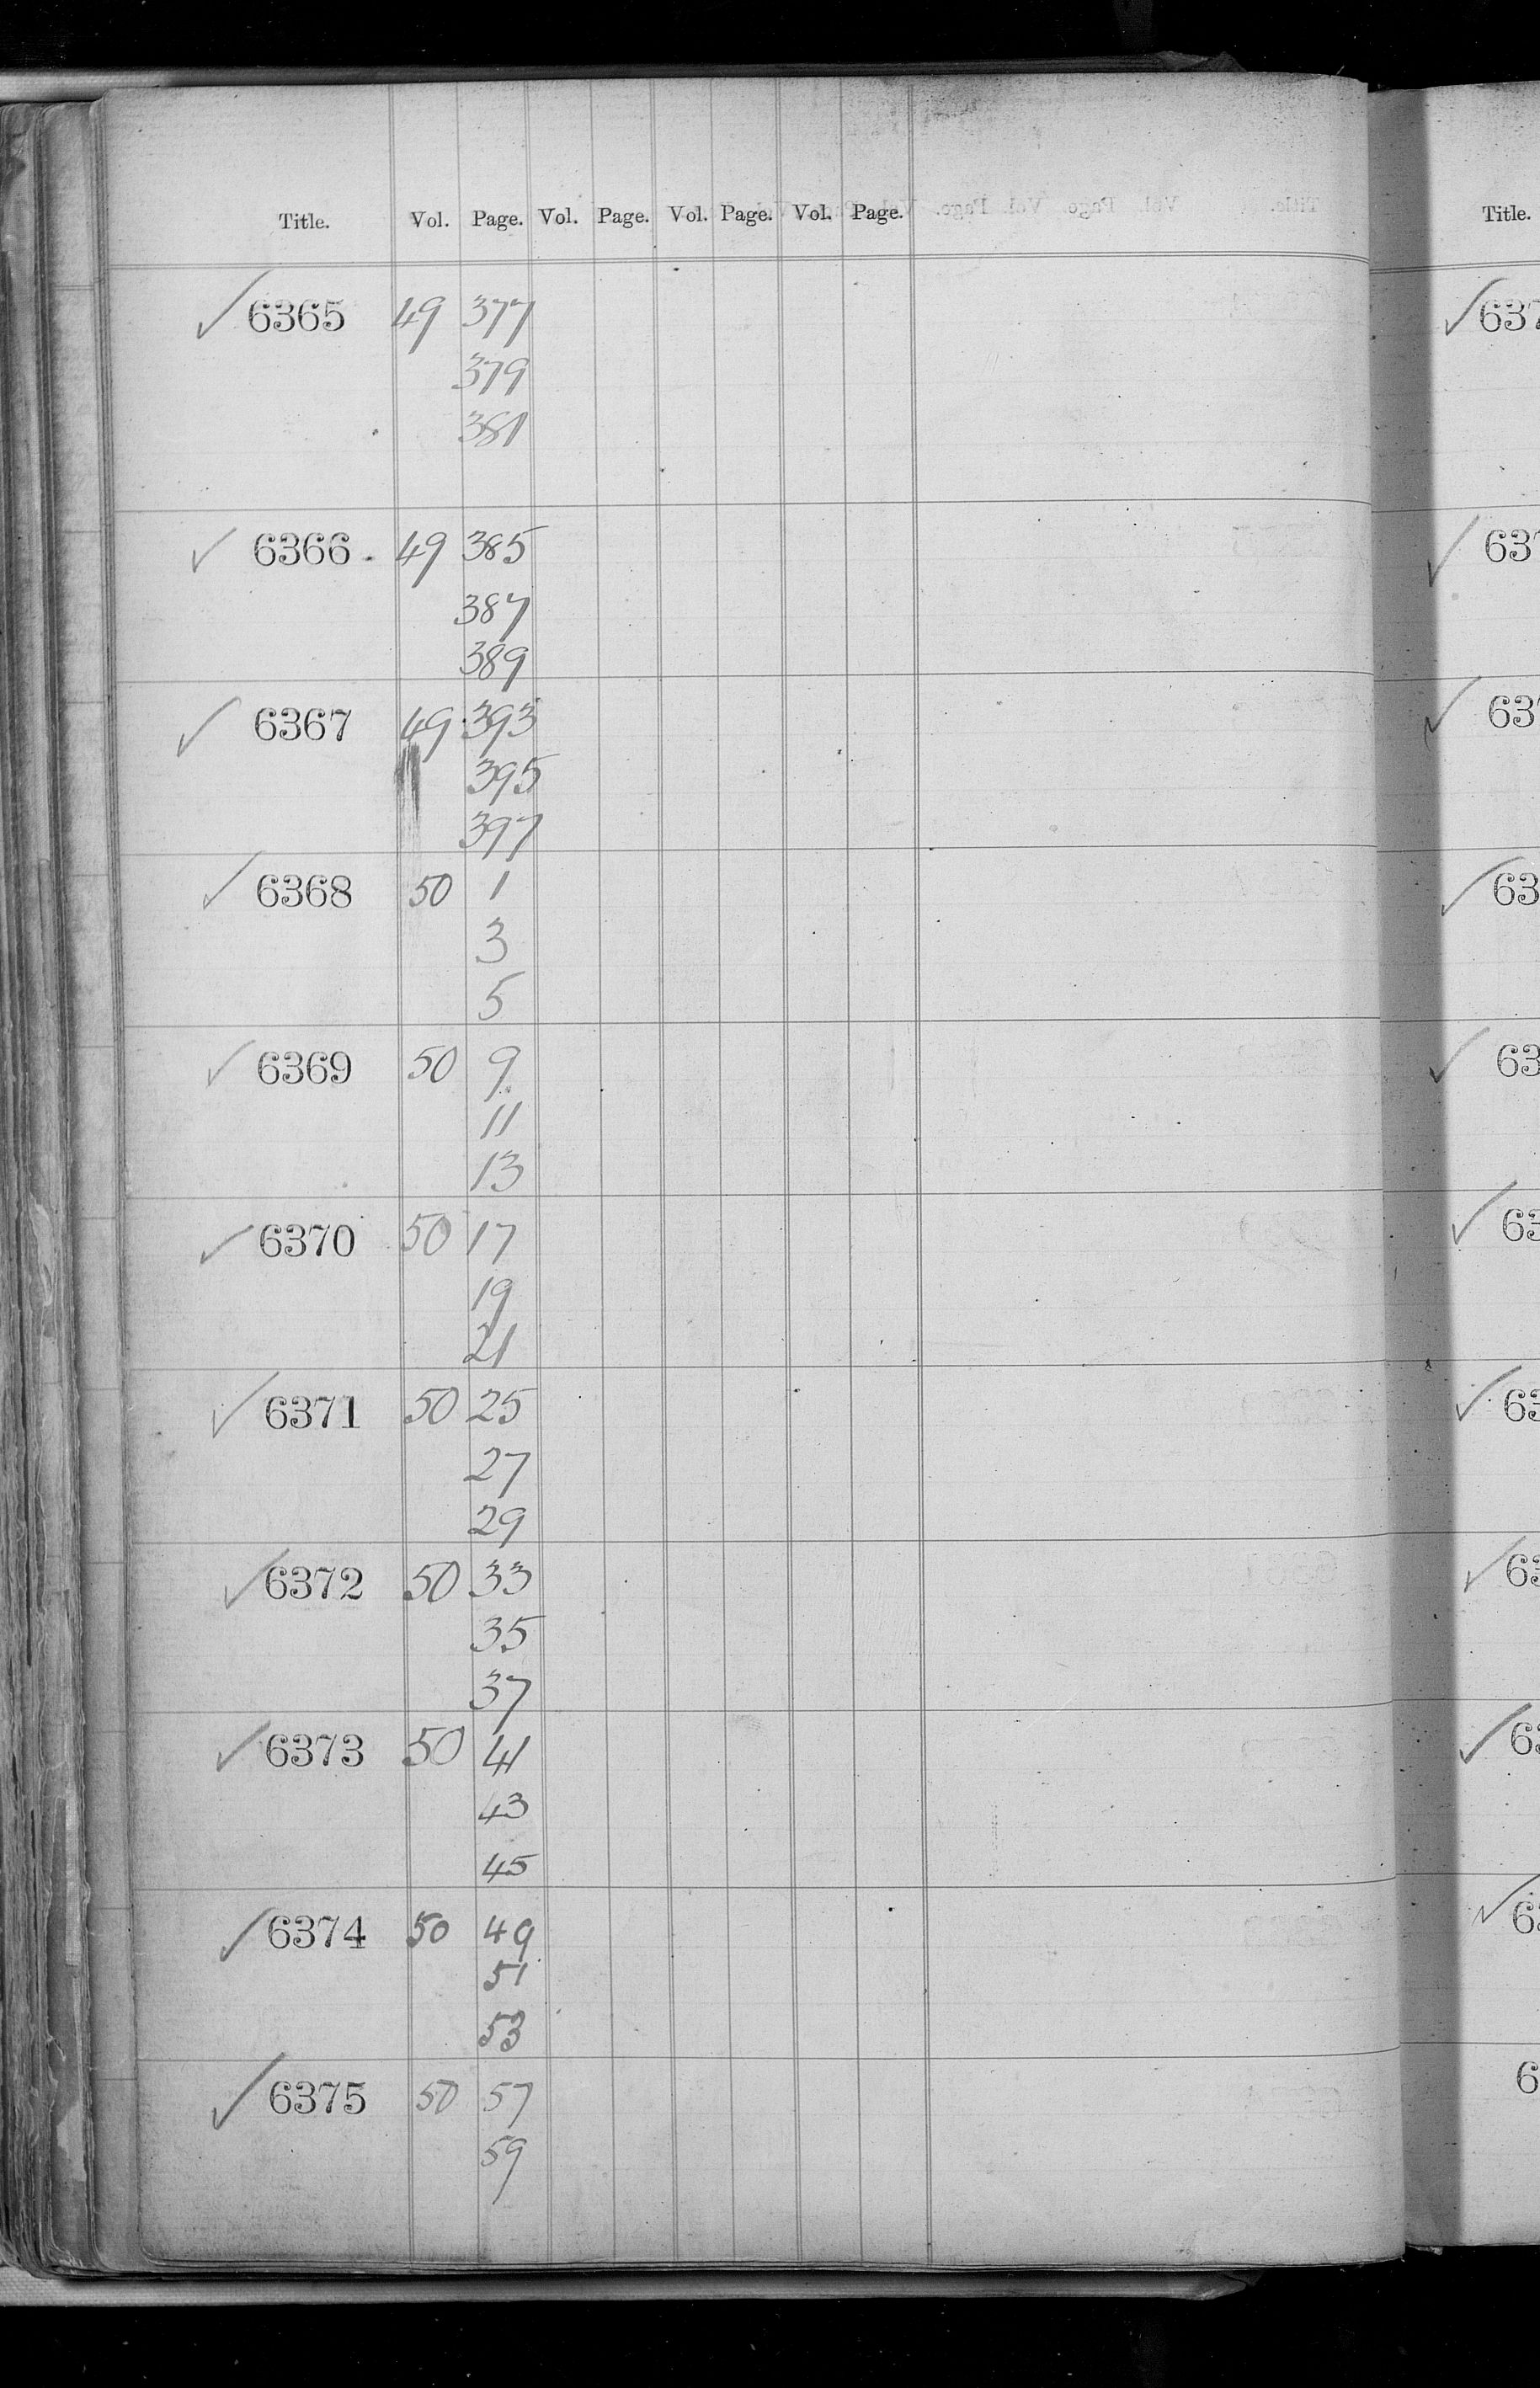 Title. Vol. Page. Vol. Page. Vol. Page. Vol. Page. Title.
✓ 6365 49 377
379
381
✓ 6366 49 385
387
389
✓ 6367 49 393
395
397
✓ 6368 50 1
3
5
✓ 6369 50 9
11
13
✓ 6370 50 17
19
21
✓ 6371 50 25
27
29
✓ 6372 50 33
35
37
✓ 6373 50 41
43
45
✓ 6374 50 49
51
53
✓ 6375 50 57
59